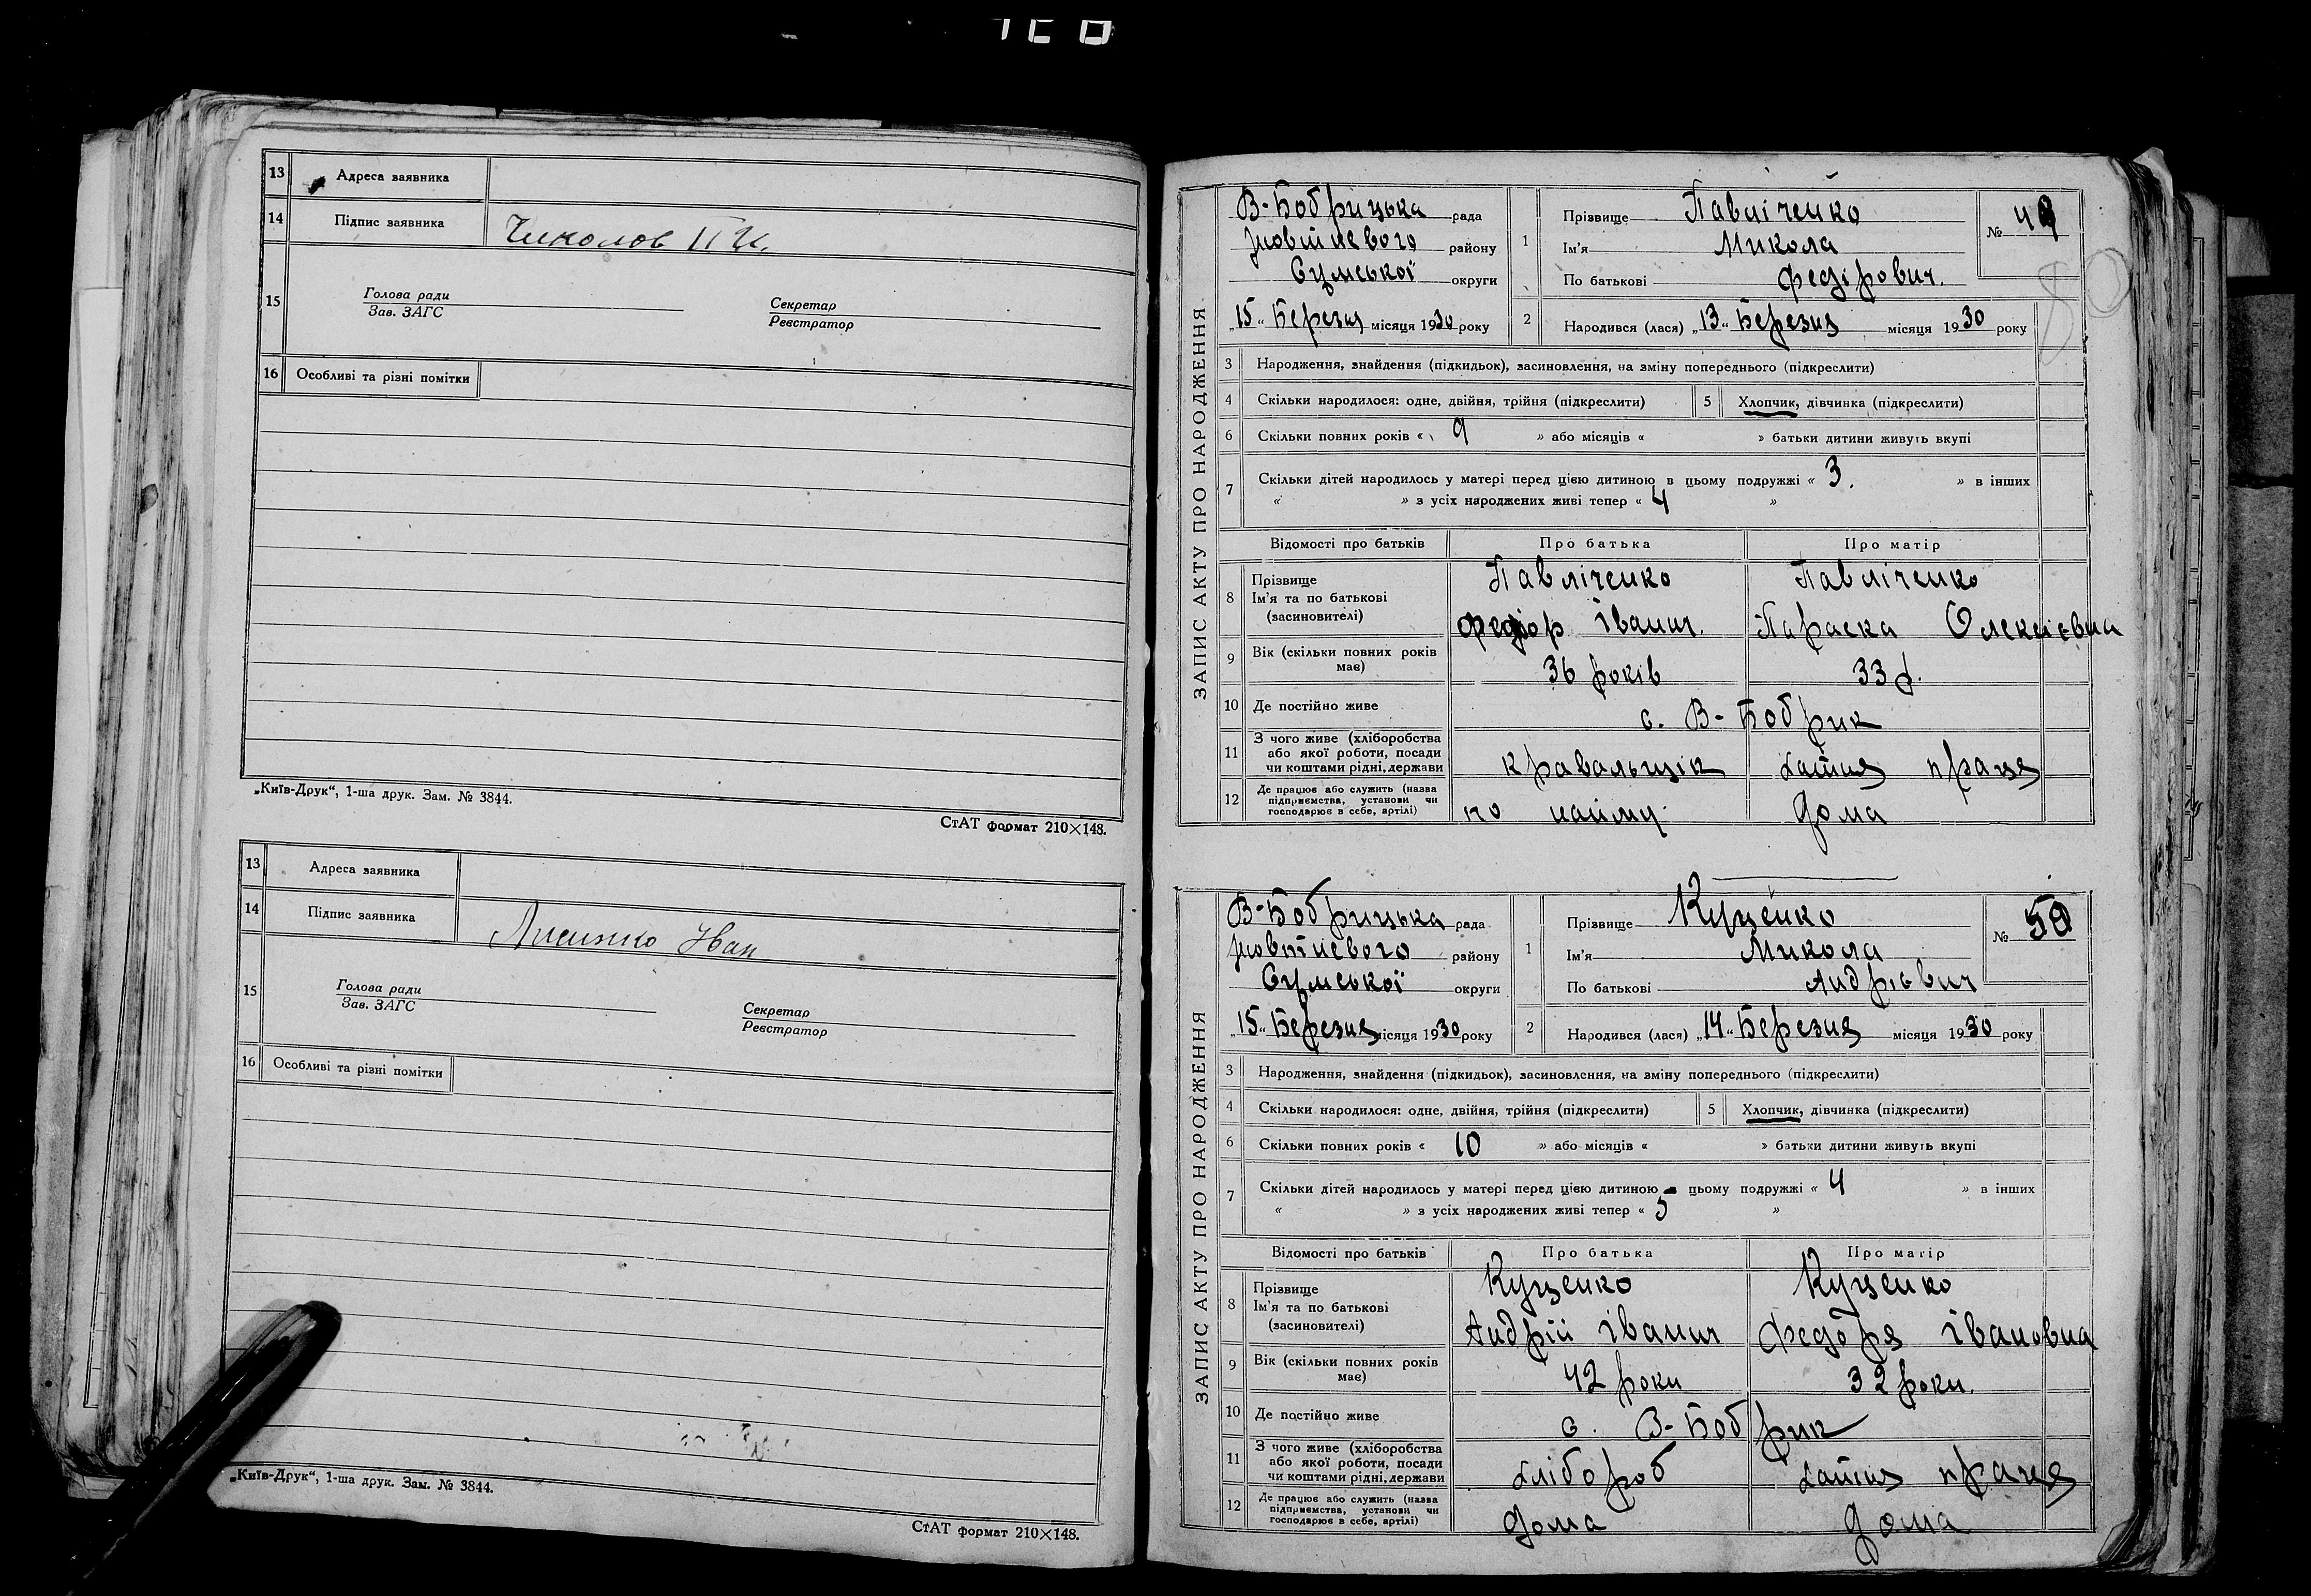 13 Адреса заявника
14 Підпис заявника Чиколов П И.
15 Голова ради Секретар
Зав. ЗАГС Реєстратор
16 Особливі та різні помітки
„Київ-Друк“, 1-ша друк. Зам. № 3844.
СтАТ формат 210×148.
13 Адреса заявника
14 Підпис заявника Лисенко Иван
15 Голова ради Секретар
Зав. ЗАГС Реєстратор
16 Особливі та різні помітки
„Київ-Друк“, 1-ша друк. Зам. № 3844.
СтАТ формат 210×148.
80
ЗАПИС АКТУ ПРО НАРОДЖЕННЯ
В-Бобрицька рада
Жовтневого району
Сумської округи
„15“ Березня місяця 1930 року
1 Прізвище Павліченко
Ім'я Микола
По батькові Федірович.
№ 49
2 Народився (лася) „13“ Березня місяця 1930 року
3 Народження, знайдення (підкидьок), засиновлення, на зміну попереднього (підкреслити)
4 Скільки народилося: одне, двійня, трійня (підкреслити) 5 Хлопчик, дівчинка (підкреслити)
6 Скільки повних років « 9 » або місяців « » батьки дитини живуть вкупі
7 Скільки дітей народилось у матері перед цією дитиною в цьому подружжі « 3. » в інших
« » з усіх народжених живі тепер « 4 »
Відомості про батьків Про батька Про матір
8 Прізвище Павліченко Павліченко
Ім'я та по батькові
(засновителі) Федіор Іванич. Параска Олексієвна
9 Вік (скільки повних років має) 36 років 33 р.
10 Де постійно живе с. В-Бобрик
11 З чого живе (хліборобства або якої роботи, посади чи коштами рідні, держави кравальщік хатня праця
12 Де працює або служить (назва підприємства, установи чи господарює в себе, артілі) по найму. дома
ЗАПИС АКТУ ПРО НАРОДЖЕННЯ
В-Бобрицька рада
Жовтневого району
Сумської округи
„15“ Березня місяця 1930 року
1 Прізвище Куценко
Ім'я Микола
По батькові Андрієвич
№ 50
2 Народився (лася) „14“ Березня місяця 1930 року
3 Народження, знайдення (підкидьок), засиновлення, на зміну попереднього (підкреслити)
4 Скільки народилося: одне, двійня, трійня (підкреслити) 5 Хлопчик, дівчинка (підкреслити)
6 Скільки повних років « 10 » або місяців « » батьки дитини живуть вкупі
7 Скільки дітей народилось у матері перед цією дитиною в цьому подружжі « 4 » в інших
« » з усіх народжених живі тепер « 5 »
Відомості про батьків Про батька Про матір
8 Прізвище Куценко Куценко
Ім'я та по батькові
(засиновителі) Андрій Іванич Федоря Івановна
9 Вік (скільки повних років має) 42 роки 32 роки.
10 Де постійно живе с. В-Бобрик
11 З чого живе (хліборобства або якої роботи, посади чи коштами рідні, держави хлібороб хатня праця
12 Де працює або служить (назва підприємства, установи чи господарює в себе, артілі) дома дома